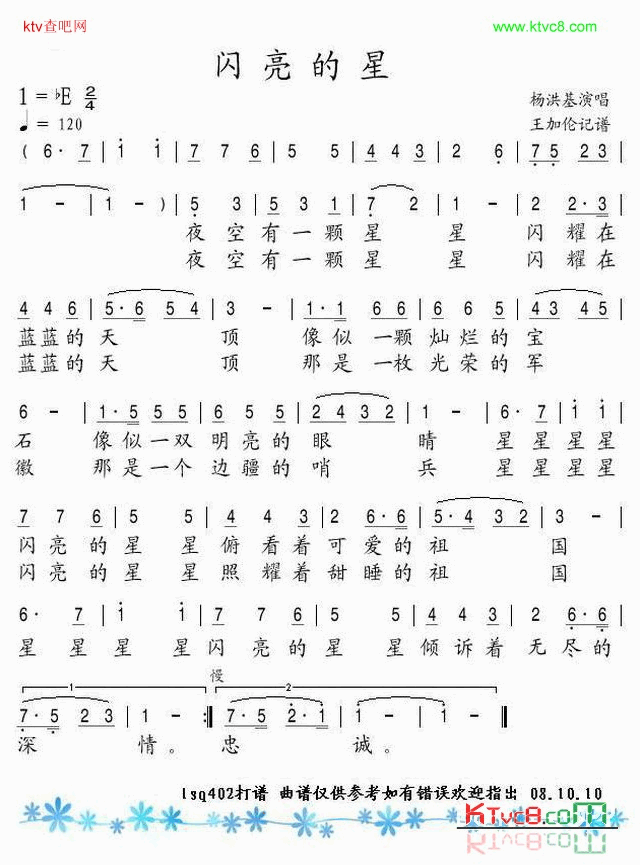 ktv查吧网
www.ktvc8.com
闪亮的星
1 = ♭E 2/4
♩ = 120
杨洪基演唱
王加伦记谱
( 6· 7 | i i | 7 7 6 | 5 5 | 4 4 3 | 2 6 | 7 5 2 3 |
1 - | 1 - ) | 5 3 | 5 3 1 | 7 2 | 1 - | 2 2·3 |
夜空有一颗星 星 闪耀在
夜空有一颗星 星 闪耀在
4 4 6 | 5·6 5 4 | 3 - | 1·1 6 6 | 6 6 2 | 4 3 4 5 |
蓝蓝的天 顶 像似一颗灿烂的宝
蓝蓝的天 顶 那是一枚光荣的军
6 - | 1·5 5 5 | 6 5 5 | 2 4 3 2 | 1 - | 6· 7 | i i |
石 像似一双明亮的眼 睛 星星星星
徽 那是一个边疆的哨 兵 星星星星
7 7 6 | 5 5 | 4 4 3 | 2 6 | 5·4 3 2 | 3 - |
闪亮的星星俯看着可爱的祖 国
闪亮的星星照耀着甜睡的祖 国
6· 7 | i i | 7 7 6 | 5 5 | 4 4 3 | 2 6·6 |
星星星星闪亮的星星倾诉着无尽的
慢
1 2
7·5 2 3 | 1 - :‖ 7·5 2·1 | 1 - | 1 - ‖
深 情。忠 诚。
lsq402打谱 曲谱仅供参考如有错误欢迎指出 08.10.10
KTvc8.com